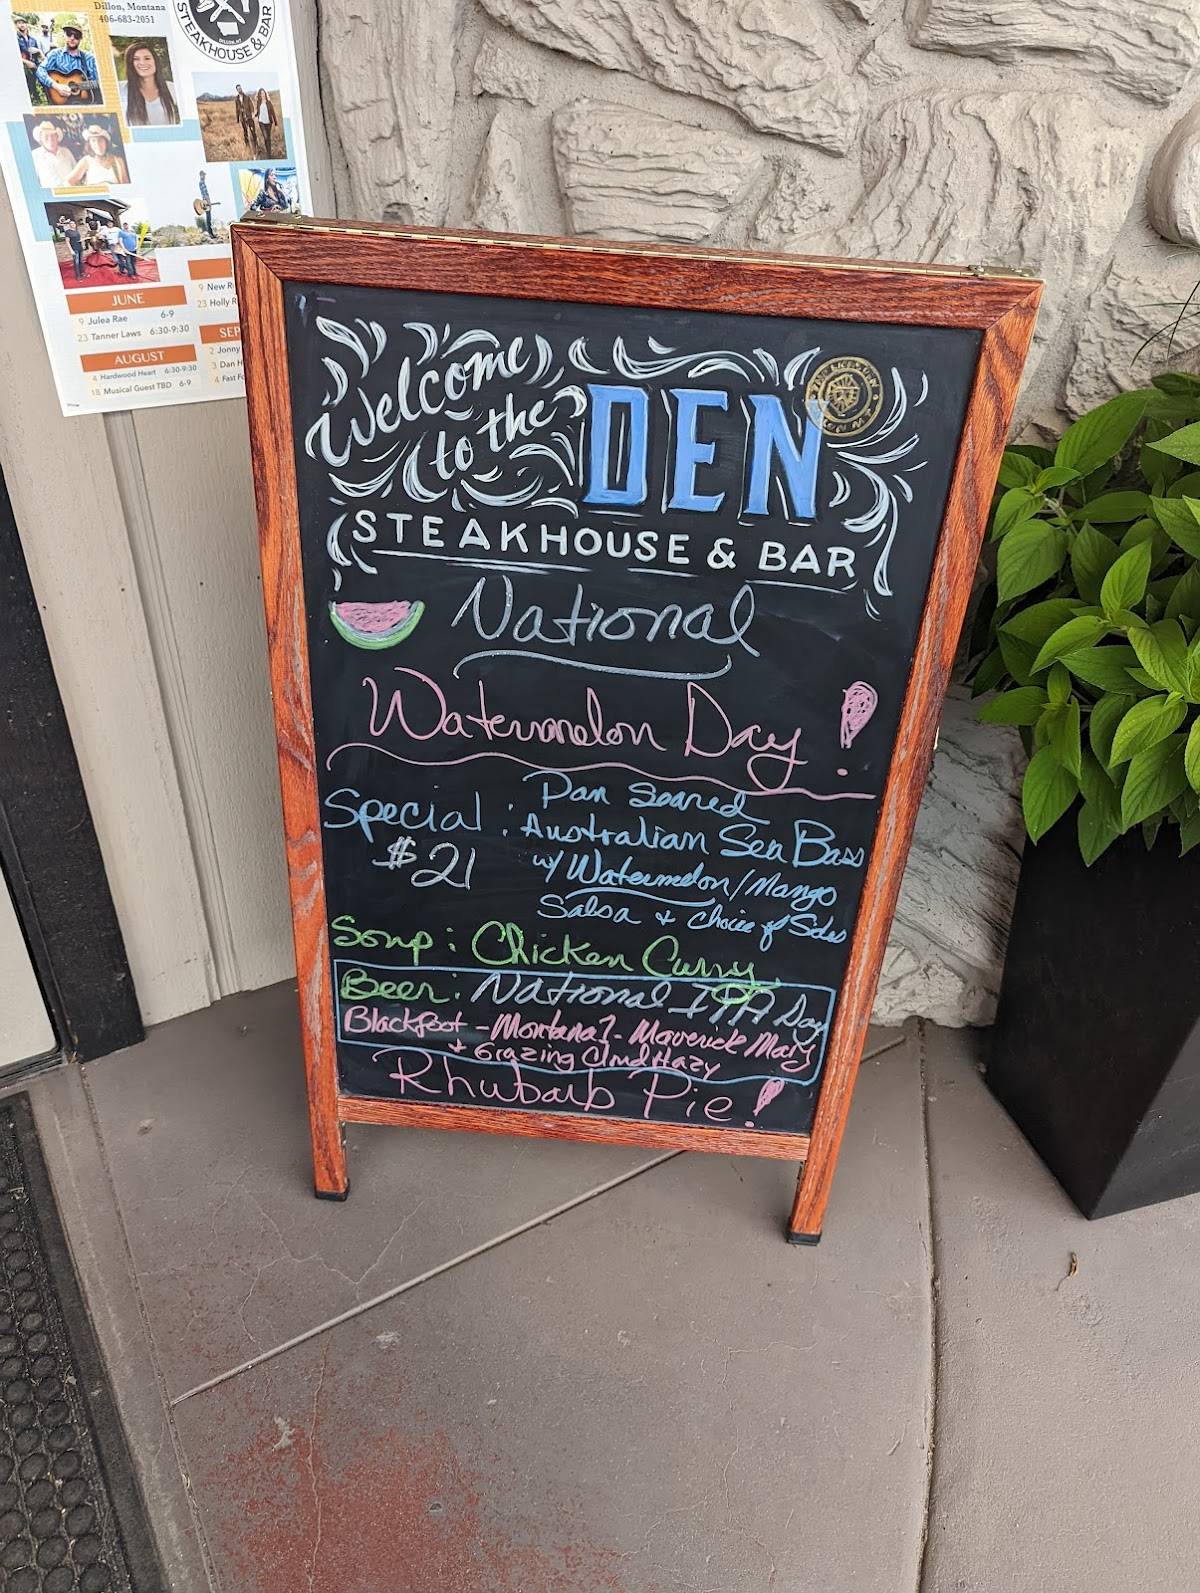 Dillon, Montana
406-683-2051
STEAKHOUSE & BAR
JUNE
9 Julea Rae 6-9
23 Tanner Laws 6:30-9:30
AUGUST
4 Hardwood Heart 6:30-9:30
18 Musical Guest TBD 6-9
9 New
23 Holly
SEP
2 Jonny
3 Dan
4 Fast
Welcome
to the DEN
STEAKHOUSE & BAR
National
Watermelon Day!
Special: Pan Seared
$21 Australian Sea Bass
w/ Watermelon/Mango
Salsa + Choice of Sides
Soup: Chicken Curry
Beer: National IPA Day
Blackfoot - Montana? - Maverick Mary
+ Grazing Cloud Hazy
Rhubarb Pie!